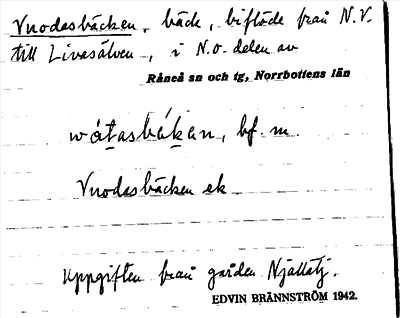 Vuodasbäcken, bäck, biflöde från N.V.
till Livasälven, i N.O. delen av
Råneå sn och tg, Norrbottens län
wåtasbäkan, bf. m.
Vuodasbäcken ek
Uppgiften från gården Njallatj.
EDVIN BRÄNNSTRÖM 1942.